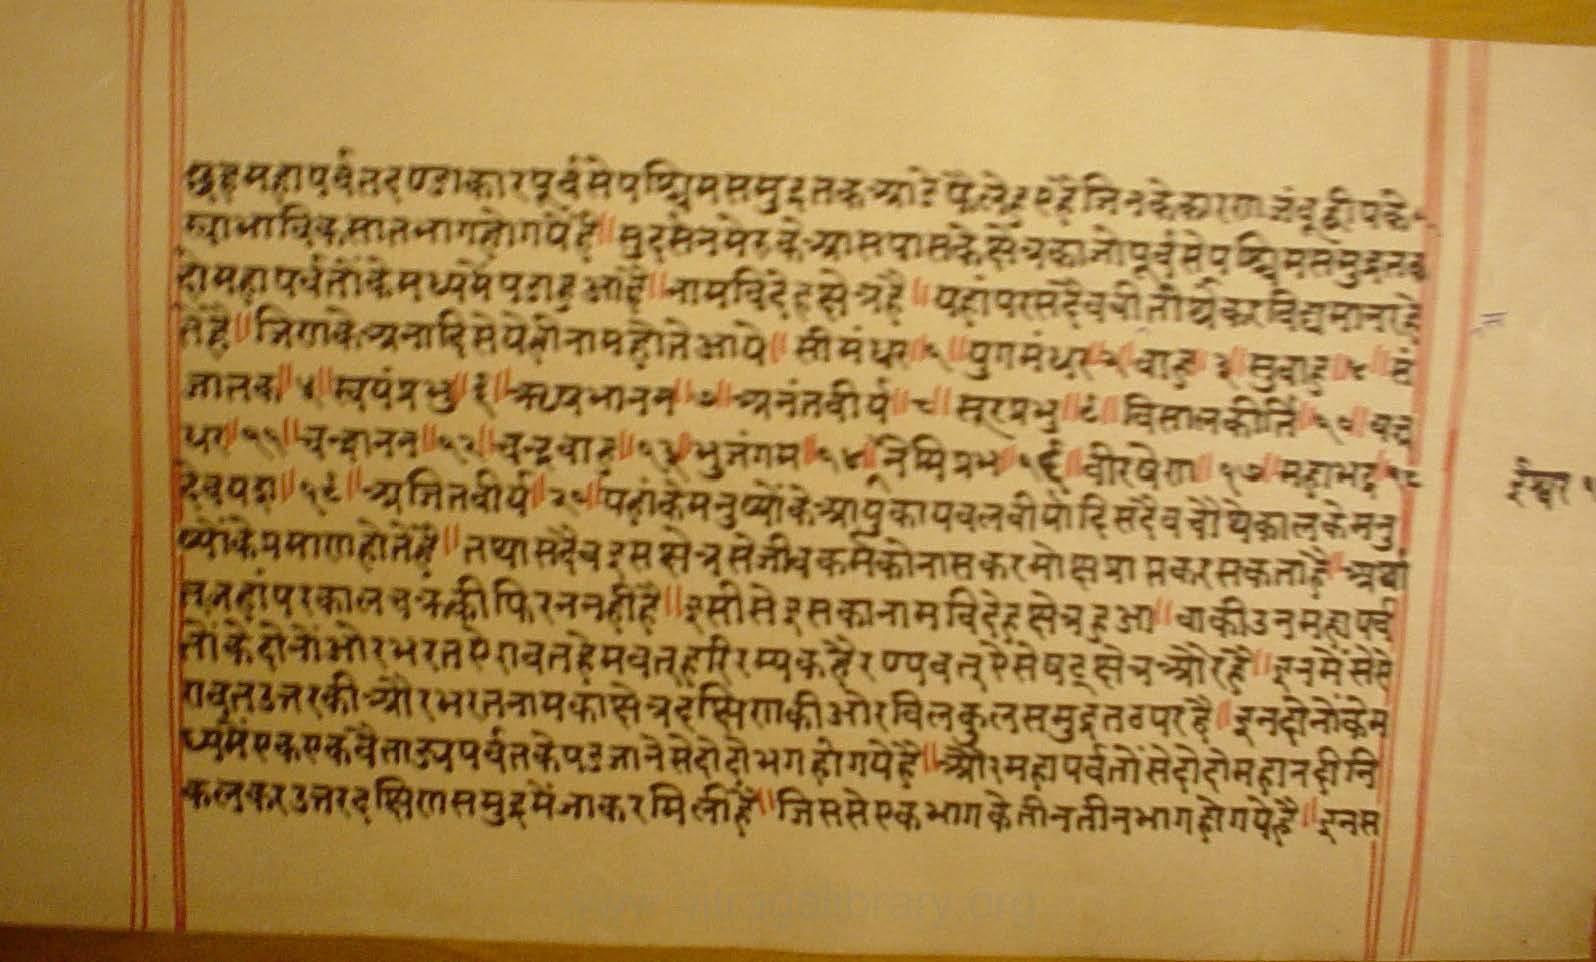 छह महा पर्वत दण्डाकार पूर्व से पश्चिम समुद्र तक आडे फैले हुए हैं जिन के कारण जंबूद्वीप के
स्वाभाविक सात भाग हो गये हैं ॥ सुदर्सन मेरु के आस पास के क्षेत्र का जो पूर्व से पश्चिम समुद्र तक
दो महा पर्वतों के मध्य में पडा हुआ है ॥ नाम विदेह क्षेत्र है ॥ यहां पर सदैव वी तीर्थंकर विद्यमान रहे
ते हैं ॥ जिण के अनादि से येही नाम होते आये ॥ सीमंधर १ ॥ युगमंधर २ ॥ वाहु ३ ॥ सुवाहु ॥ ४ ॥ सं
जातक ॥ ५ ॥ स्वयंप्रभु ॥ ६ ॥ ऋषभानन ॥ ७ ॥ अनंतवीर्य ॥ ८ ॥ सूरप्रभु ॥ ९ ॥ विसालकीर्ति ॥ १० ॥ वज्र
धर ॥ ११ ॥ चन्द्रानन ॥ १२ ॥ चन्द्रवाहु ॥ १३ ॥ भुजंगम ॥ १४ ॥ नेमिप्रभ ॥ १६ ॥ वीरषेण ॥ १७ ॥ महाभद्र १८
देवयश ॥ १९ ॥ अजितवीर्य ॥ २० ॥ यहां के मनुष्यों के आयु काय वल वीर्यादि सदैव चौथे काल के मनु
ष्यों के प्रमाण होते हैं ॥ तथा सदैव इस क्षेत्र से जीव कर्म को नास कर मोक्ष प्राप्त कर सकता है ॥ अर्था
त् जहां पर काल चक्र की फिरन नहीं है ॥ इसी से इस का नाम विदेह क्षेत्र हुआ ॥ वाकी उन महा पर्व
तों के दोनों ओर भरत ऐरावत हेमवत हरि रम्यक हैरण्यवत् ऐसे षट् क्षेत्र और हैं ॥ इन में से ऐ
रावत उत्तर की और भरत नाम का क्षेत्र दक्षिण की ओर विलकुल समुद्र तट पर है ॥ इन दोनों के म
ध्य में एक एक वैताड्य पर्वत के पड जाने से दो दो भग हो गये हैं ॥ और महा पर्वतों से दो दो महा नदी नि
कल कर उत्तर दक्षिण समुद्र में जा कर मिली हैं ॥ जिस से एक भाग के तीन तीन भाग हो गये हैं ॥ इन स
ईश्वर १